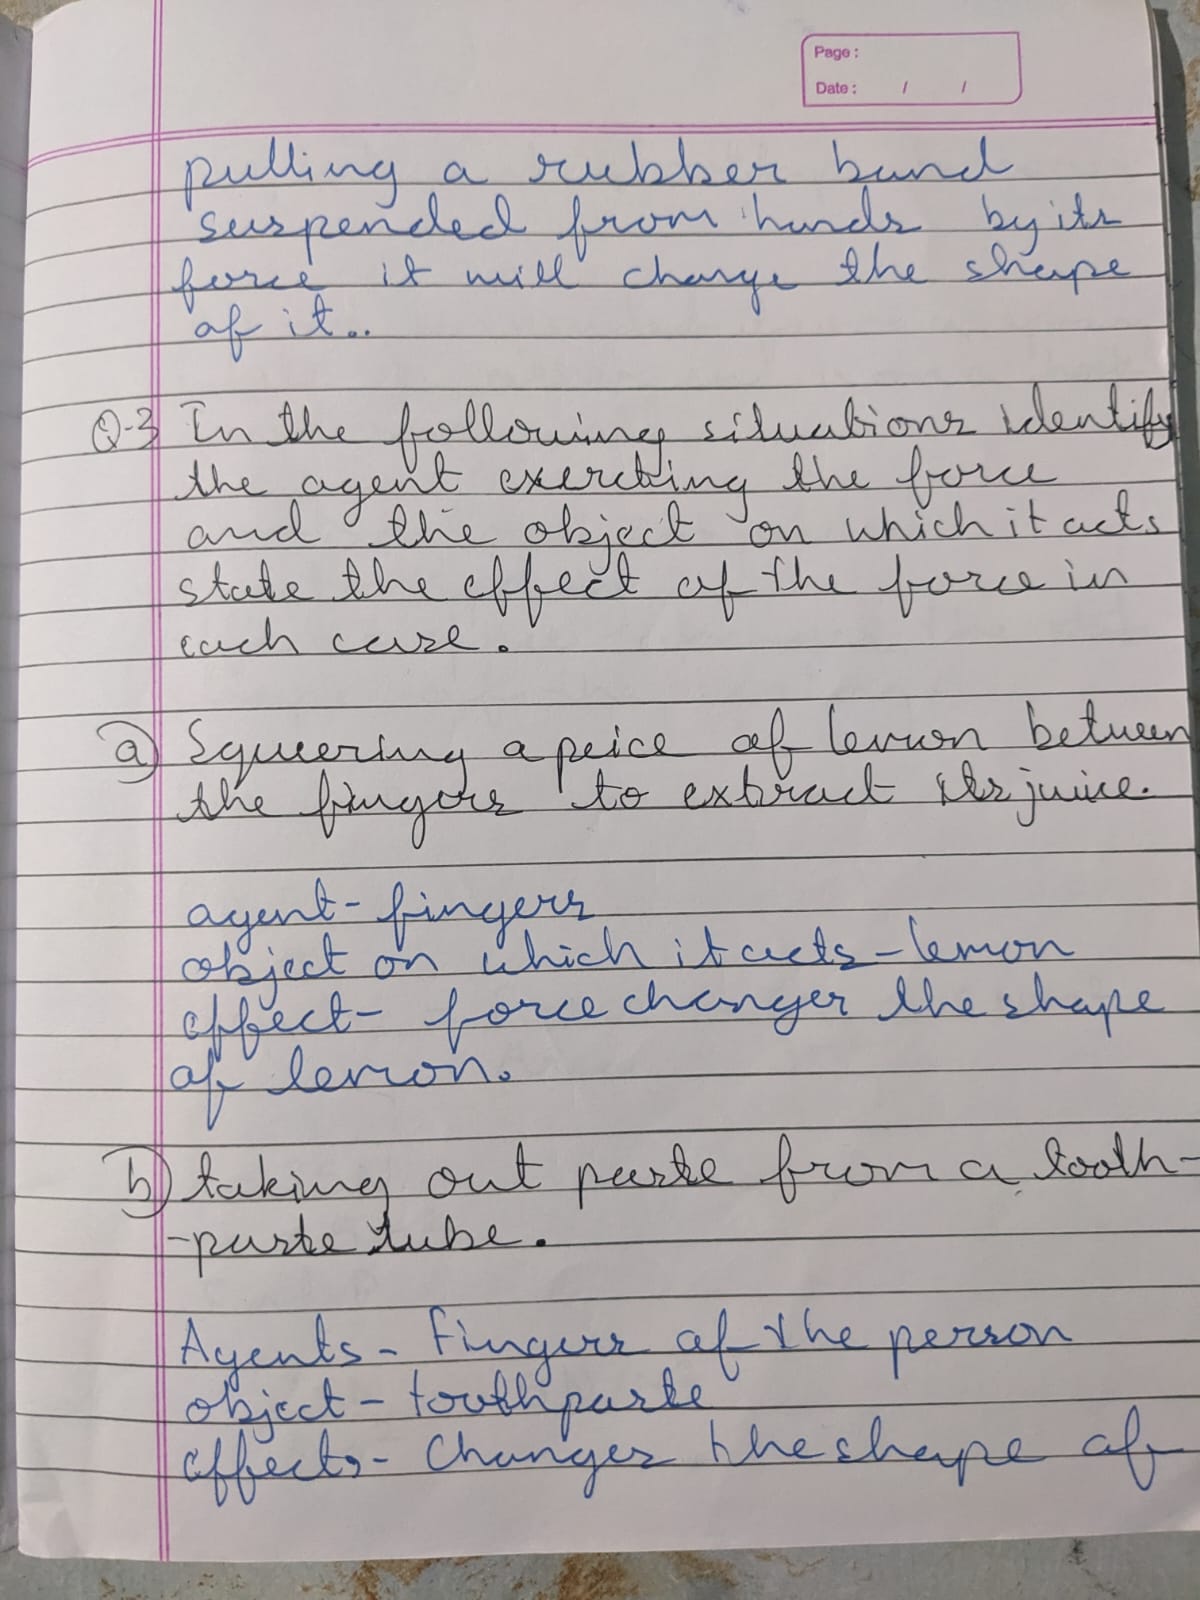 Page:
Date: / /
pulling a rubber band
suspended from hands by its
force it will change the shape
of it..
Q-3 In the following situations identify
the agent exercting the force
and the object on which it acts
state the effect of the force in
each case.
a) Squeezing a peice of lemon between
the fingers to extract its juice.
agent - fingers
object on which it acts - lemon
effect - force changes the shape
of lemon.
b) taking out paste from a tooth-
-paste tube.
Agents - Fingers of the person
object - toothpaste
effects - Changes the shape of